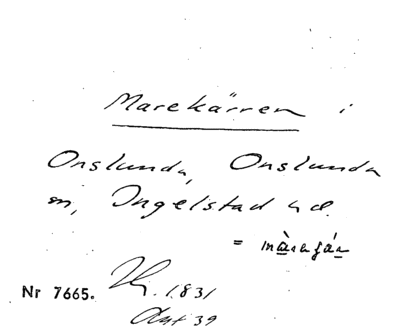 Marekärren i
Onslunda, Onslunda
sn, Ingelstad hd.
=
Nr 7665. 1831
Akt 39